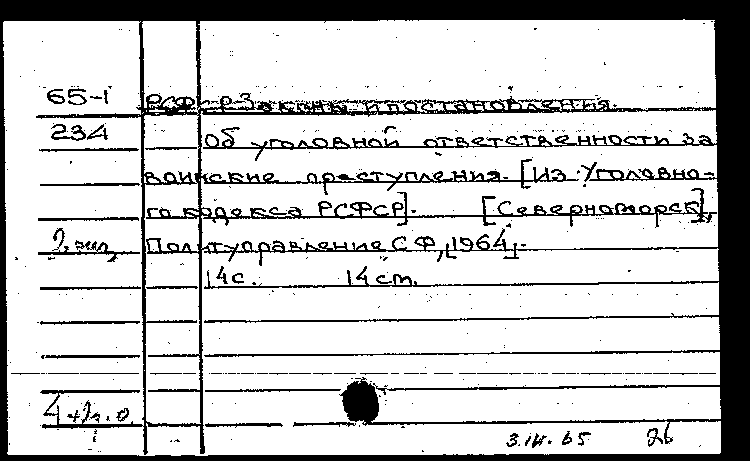 65-1 РСФСР-Законы и постановления.
234 Об уголовной ответственности за
воинские преступления. [Из Уголовно-
го кодекса РСФСР]. [Североморск],
Политуправление СФ, [1964].
14 с. 14 ст.
4
3.IV.65 26